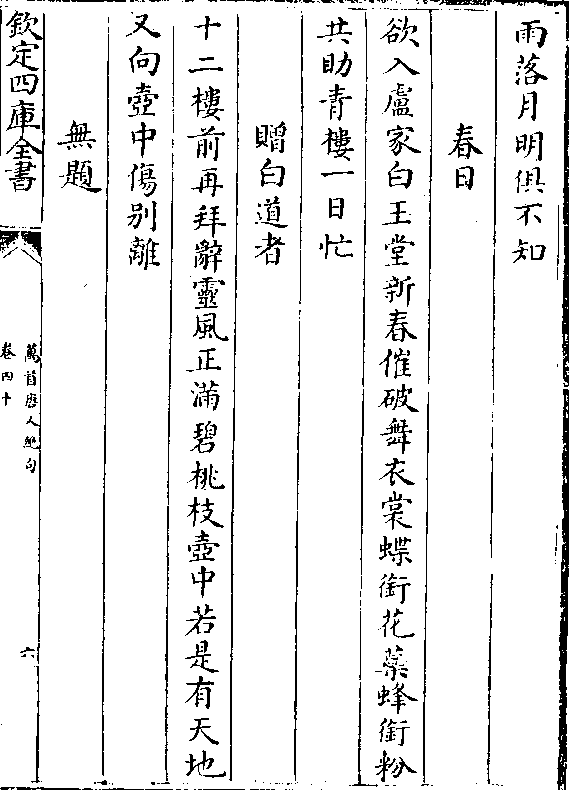 雨落月明俱不知
春日
欲入盧家白玉堂新春催破舞衣裳蝶銜花蘂蜂銜粉
共助青樓一日忙
贈白道者
十二樓前再拜辭靈風正滿碧桃枝壺中若是有天地
又向壺中傷別離
無題
欽定四庫全書
萬首唐人絶句
卷四十
六